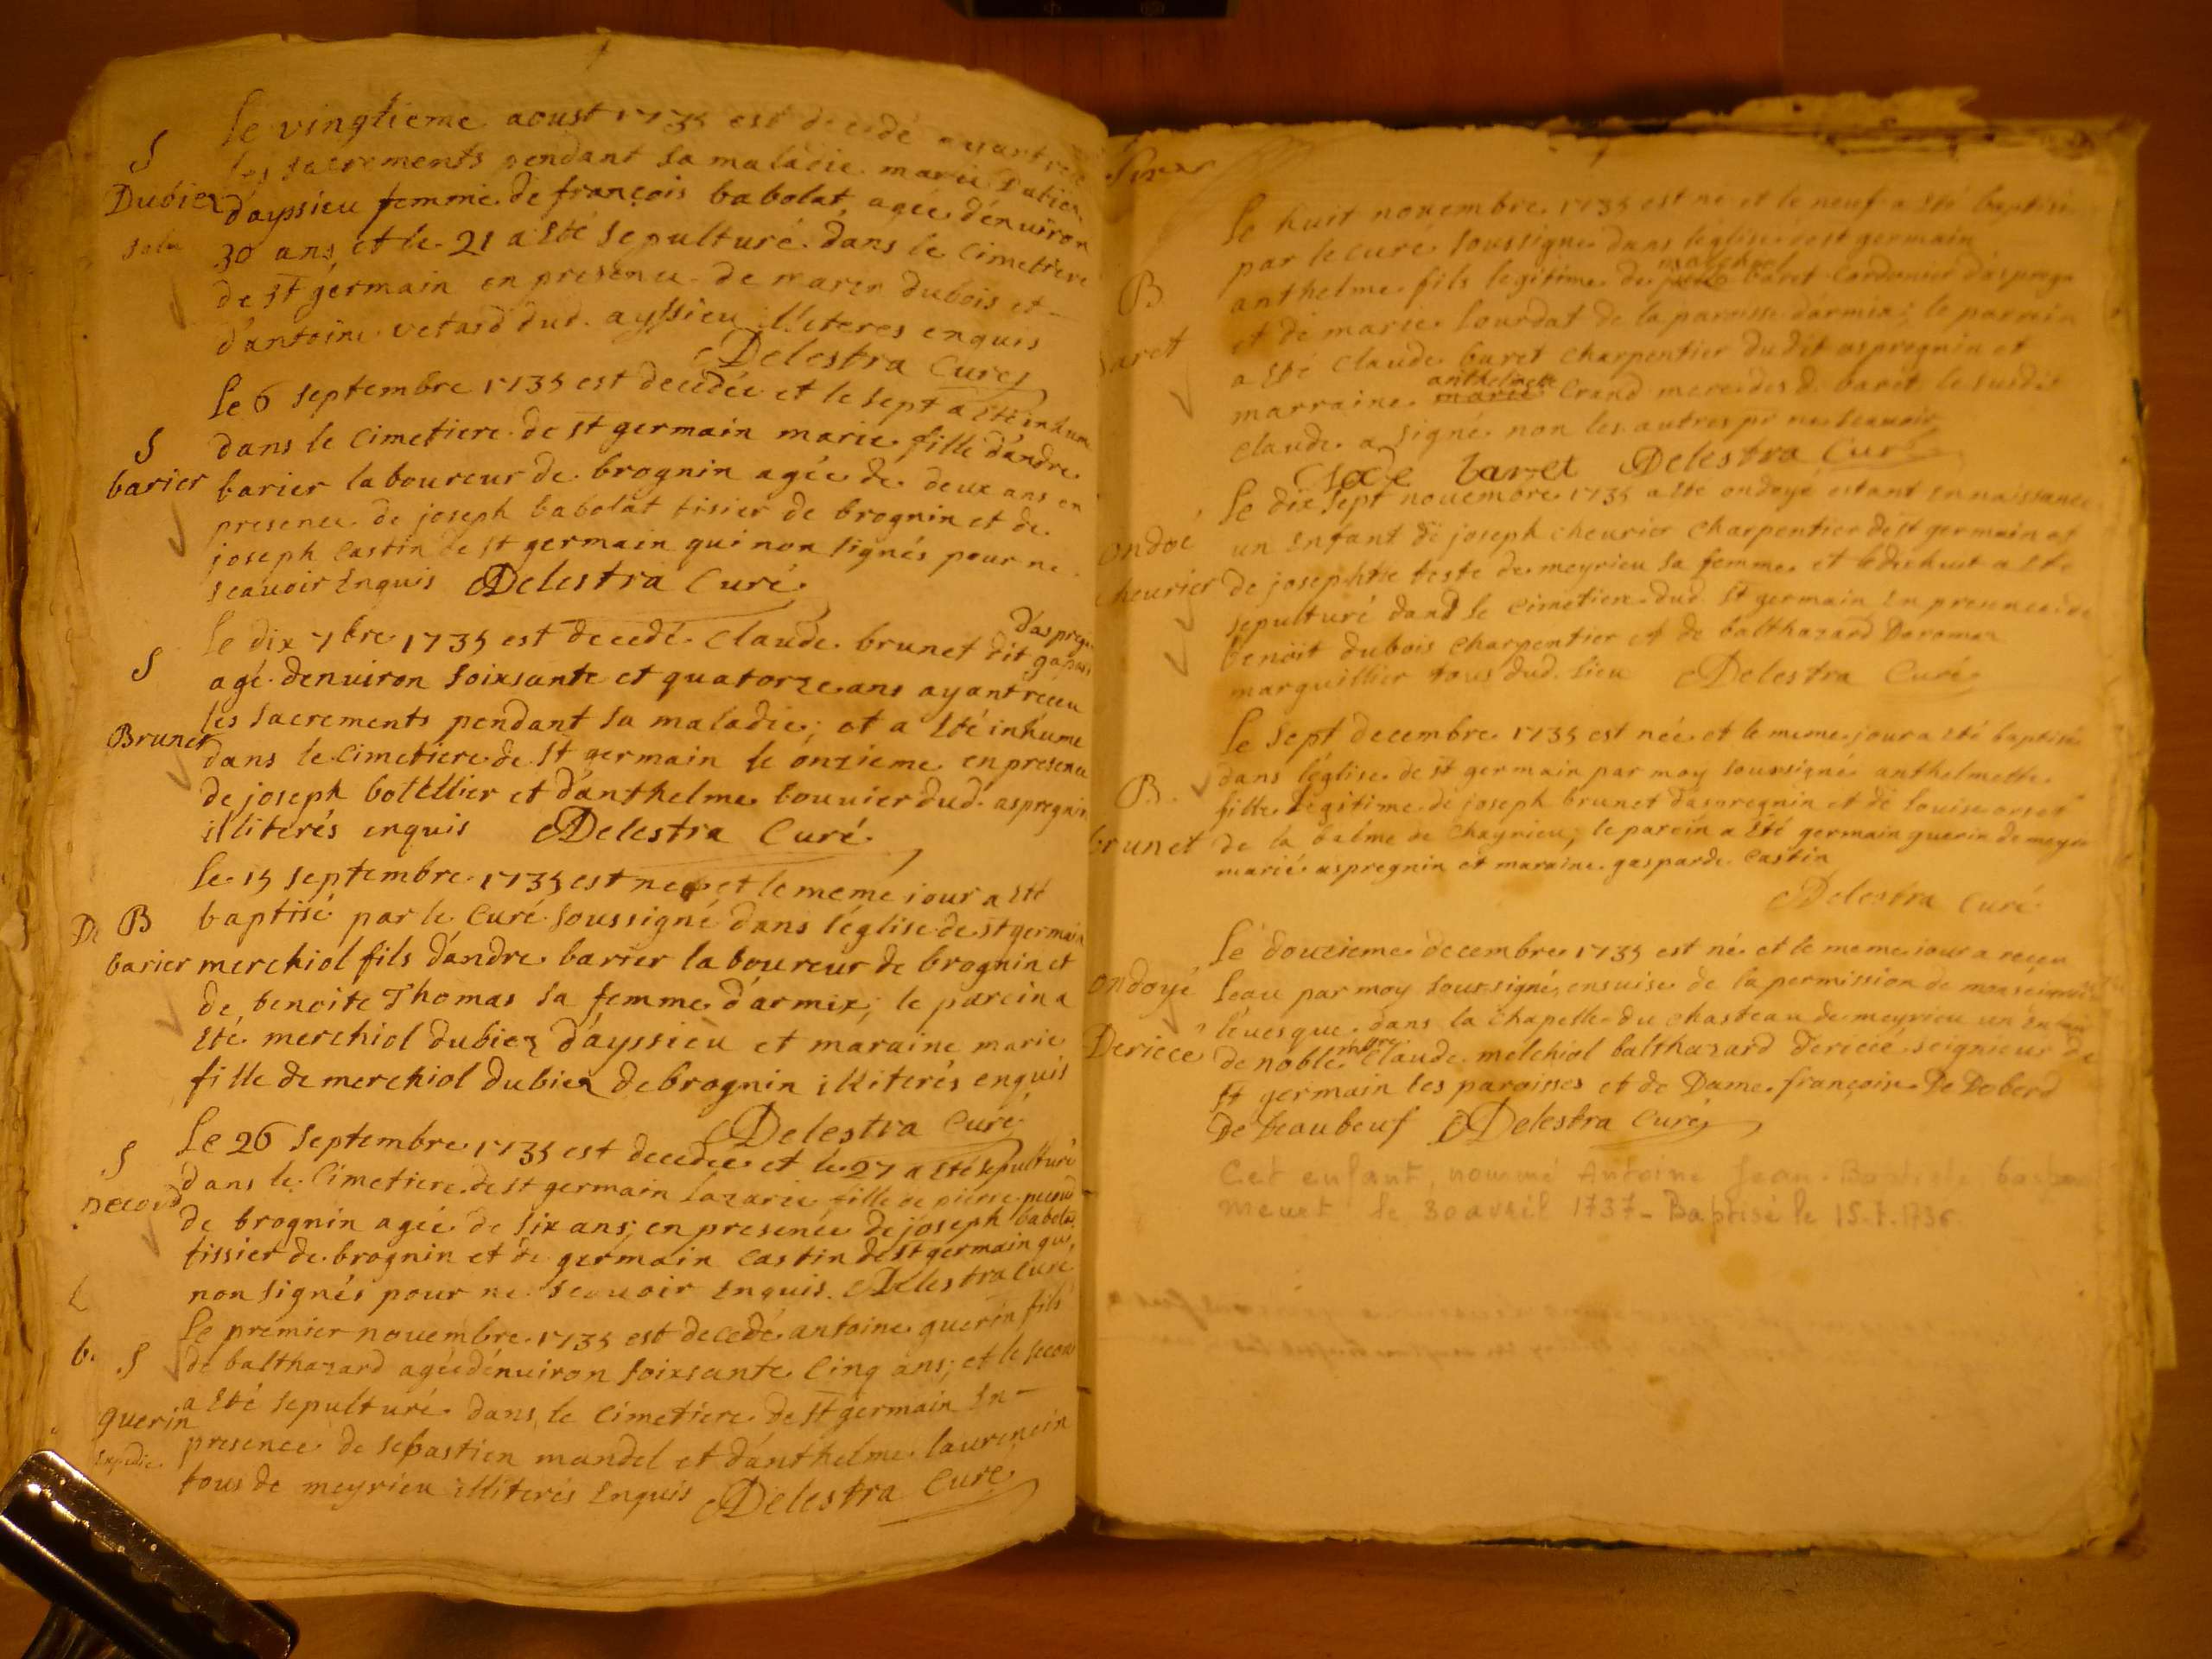 S
Dubiez
solu
le vingtieme aoust 1735 est decedé ayant receu
les sacrements pendant sa maladie marie Dubiez
d'ayssieu femme de françois babolat agée d'enuiron
30 ans et le 21 a Eté sepulturé dans le cimetiere
de st germain en presence de marin dubois et
d'antoine vetard dud. ayssieu illiteres enquis
Delestra Curé
S
barier
le 6 septembre 1735 est decedée et le sept a Eté inhum
dans le cimetiere de st germain marie fille d'andre
barier laboureur de brognin agée de deux ans en
presence de joseph babolat tisier de brognin et de
joseph castin de st germain qui non signés pour ne
scauoir Enquis Delestra Curé
S
Brunet
d'aspregn
le dix 7bre 1735 est decedé claude brunet dit
agé denuiron soixsante et quatorze ans ayant receu
les sacrements pendant sa maladie; et a Eté inhume
dans le cimetiere de st germain le onzieme en presence
de joseph botellier et d'anthelme bouuier dud. aspregnin
illiterés enquis Delestra Curé
B
barier
le 15 septembre 1735 est ne et le meme iour a Eté
baptisé par le Curé soussigné dans l'église de st germain
merchiol fils d'andre barier laboureur de brognin et
de benoite Thomas sa femme d'armix; le parein a
Eté merchiol dubiez d'ayssieu et maraine marie
fille de merchiol dubiez de brognin illiterés enquis
Delestra Curé
S
necoud
Le 26 septembre 1735 est decedée et le 27 a Eté sepulturé
dans le cimetiere de st germain lazarie fille de pierre necoud
de brognin agée de six ans; en presence de joseph babolat
tissier de brognin et de germain castin de st germain qui
non signés pour ne scauoir Enquis. Delestra Curé
b. S
guerin
expedie
Le premier nouembre 1735 est decedé antoine guerin fils
de balthazard agée d'enuiron soixsante cinq ans; et le second
a Eté sepulturé dans le cimetiere de st germain En
presence de sebastien mandel et d'anthelme laurencin
tous de meyrieu illiterés Enquis Delestra Curé
B
baret
le huit nouembre 1735 est né et le neuf a Eté baptisé
par le curé soussigné dans l'eglise de st germain
melchiol
anthelme fils legitime de baret cordonier d'aspregn
et de marie lourdat de la paroisse d'armix; le parrein
a Eté claude baret charpentier dudit aspregnin et
anthelmette
marraine marie Crand mere des d. baret le susdit
claude a signé non les autres pr ne scauoir
Clade baret Delestra Curé
ondoé
cheurier
le dix sept nouembre 1735 a Eté ondoyé estant En naissance
un Enfant de joseph cheurier charpentier de st germain et
de josephte teste de meyrieu sa femme et le dixhuit a Eté
sepulturé dans le cimetiere dud st germain En presence de
benoit dubois charpentier et de balthazard
marguillier tous dud. lieu Delestra Curé
B.
brunet
le sept decembre 1735 est née et le meme jour a Eté baptisée
dans l'église de st germain par moy soussigné anthelmette
fille légitime de joseph brunet d'aspregnin et de louise orset
de la balme de chaynieu; le parein a Eté germain guerin de meyr
marié aspregnin et maraine gasparde castin
Delestra Curé
ondoyé
Dericee
le douzieme decembre 1735 est né et le meme iour a receu
l'eau par moy soussigné, ensuise de la permission de monseigneur
l'euesque dans la chapelle du chasteau de meyrieu un Enfant
de noble claude melchiol balthazard dericee seigneur de
st germain les paroisses et de Dame françoise De Doberd
De beaubeuf Delestra Curé
Cet enfant, nommé Antoine Jean-Baptiste
meurt le 30 avril 1737 - Baptisé le 15.7.1736